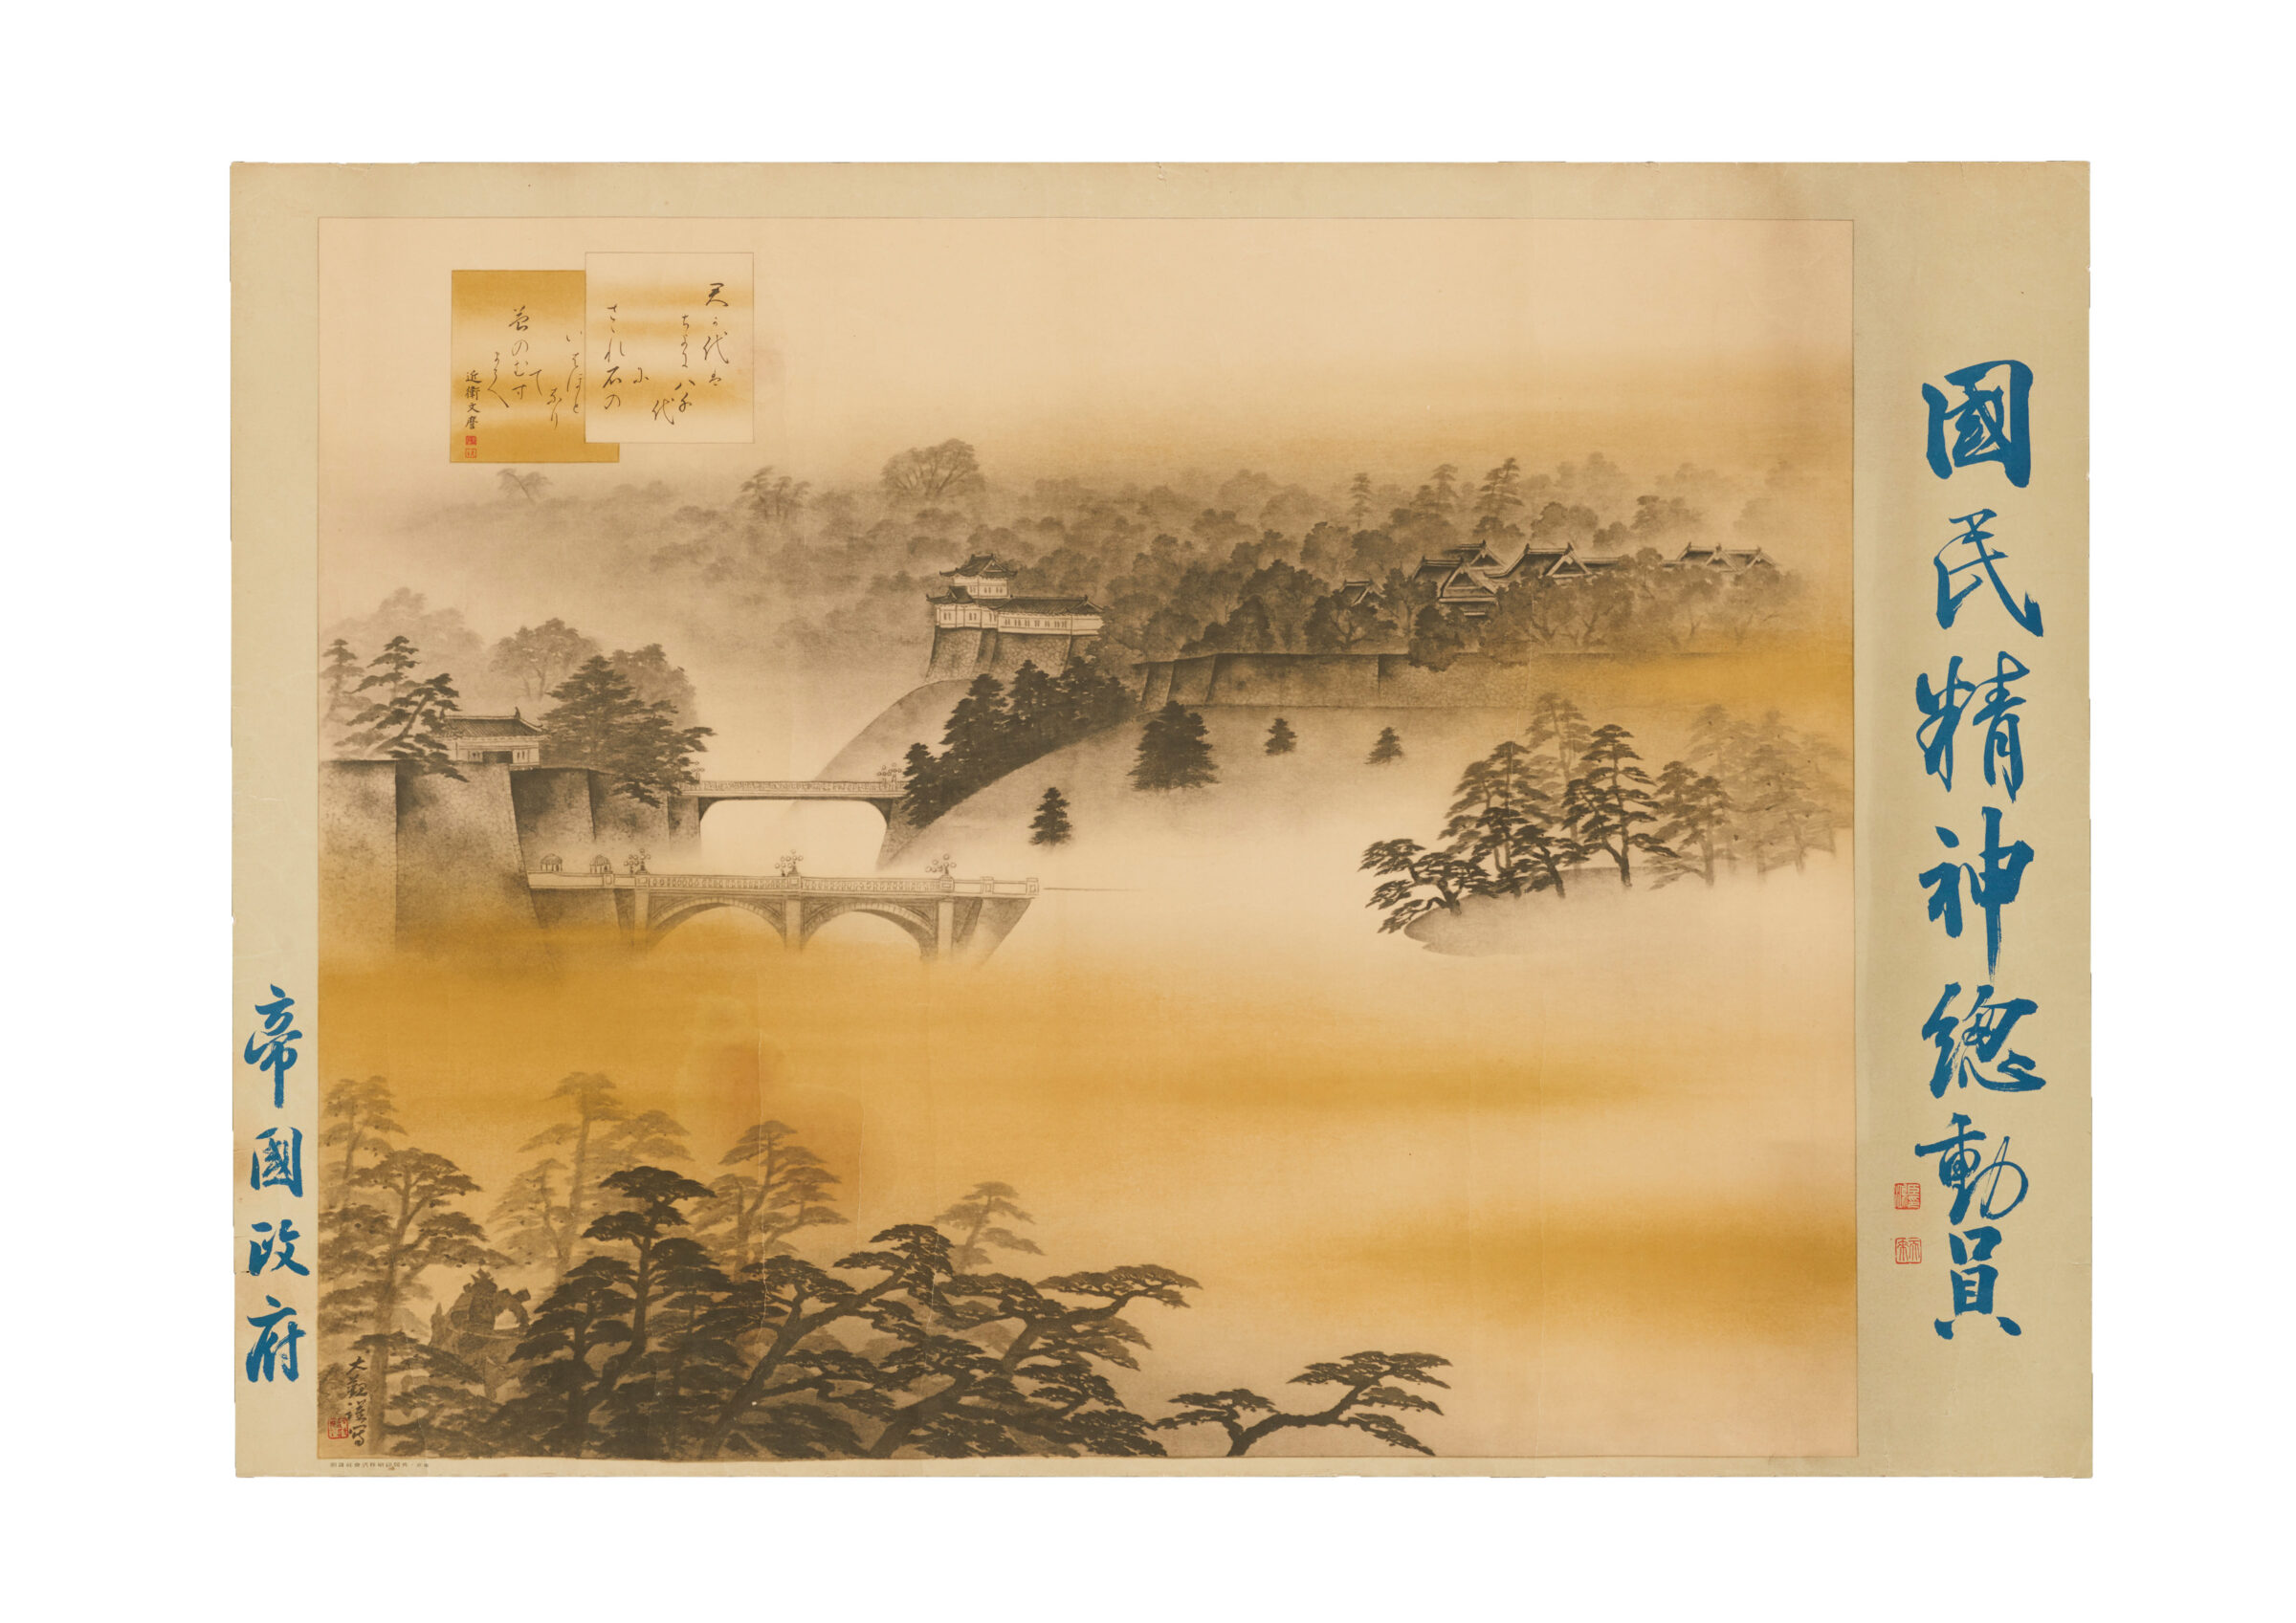 國民精神總動員
君か代は
ちよに八千
代
に
さゝれ石の
いはほと
なり
て
苔のむす
まて
近衛文麿
大観謹寫
帝國政府